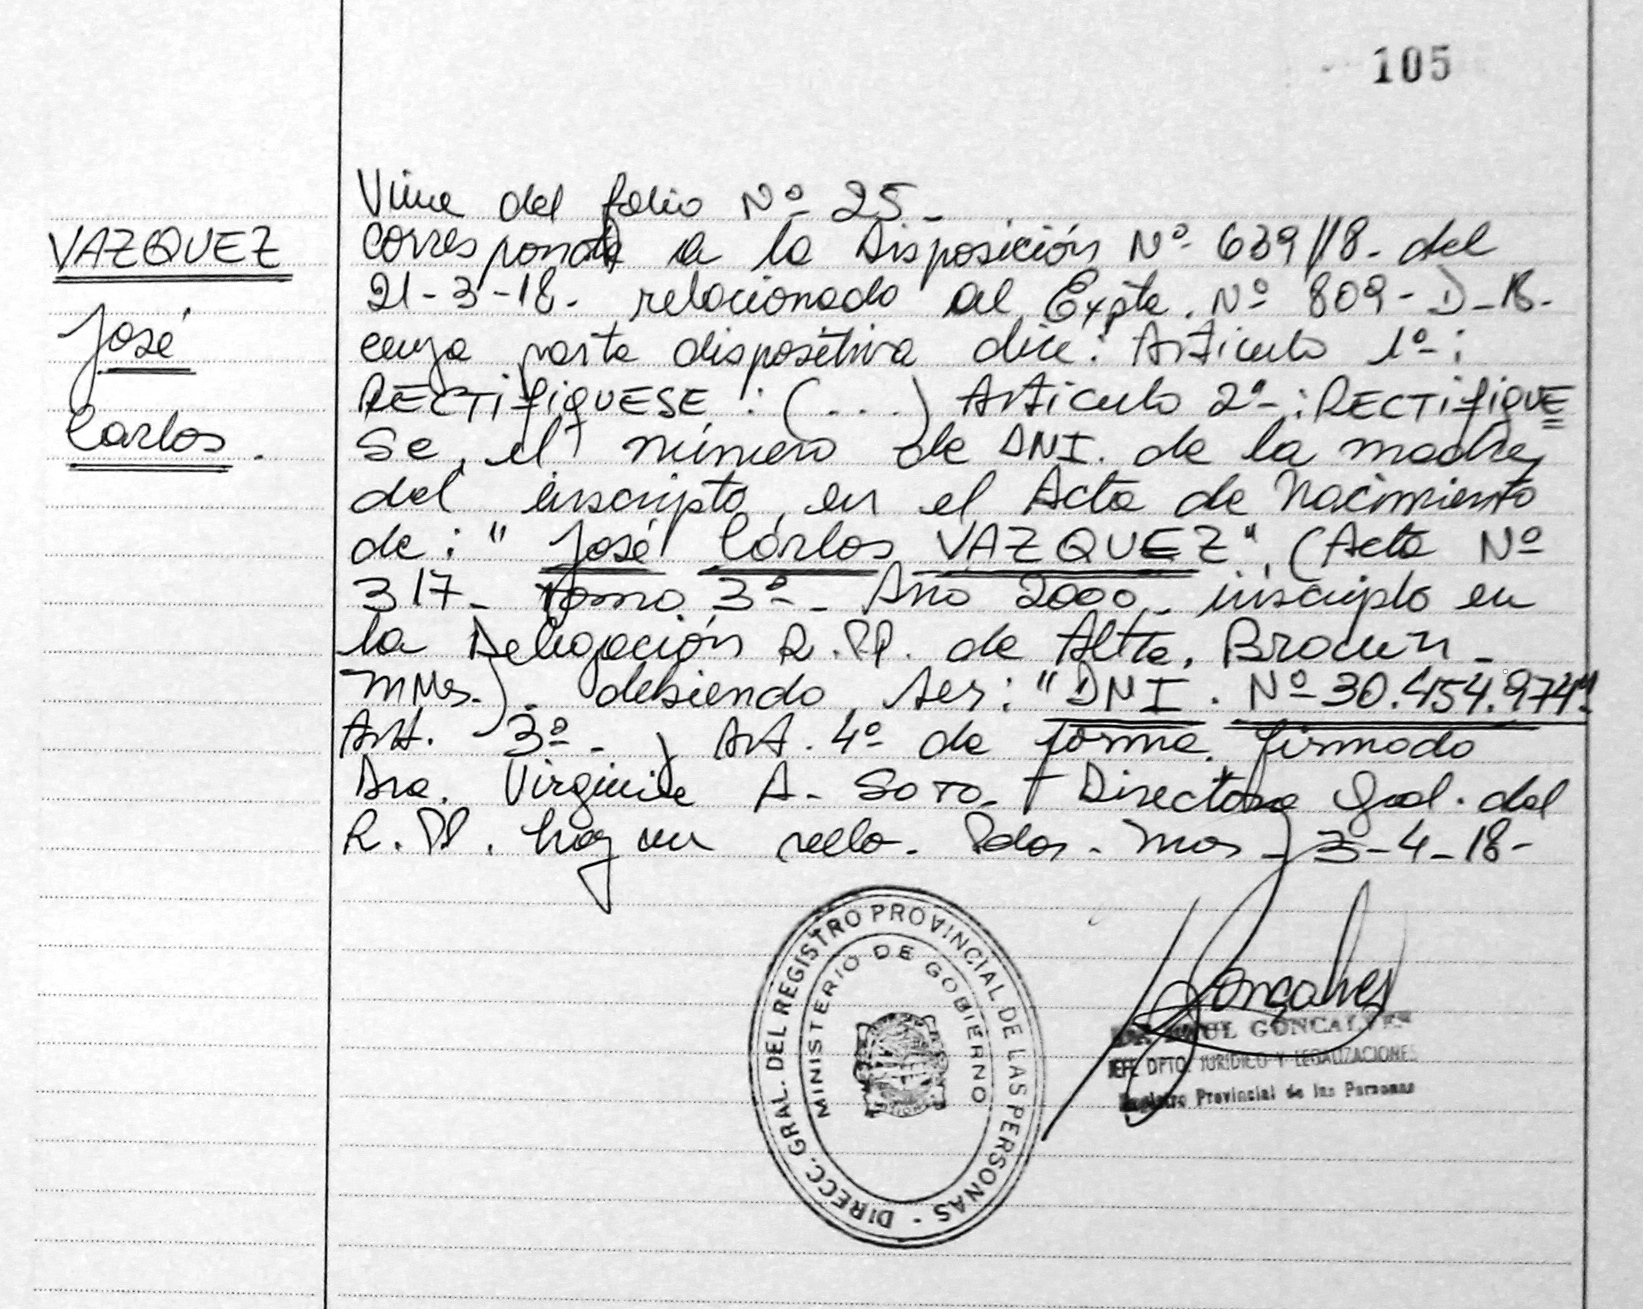 105
VAZQUEZ
José
Carlos.
Viene del folio Nº 25-
Corresponde a la Disposición Nº 639/18- del
21-3-18- relacionado al Expte. Nº 809-D-18-
cuya parte dispositiva dice: Artículo 1º-:
RECTIFIQUESE: (...) Artículo 2º-: RECTIFIQUE
Se, el número de DNI. de la madre
del inscripto, en el Acta de Nacimiento
de: " José Carlos VAZQUEZ", (Acta Nº
317- Tomo 3º- Año 2000- inscripto en
la Delegación R.PP. de Alte. Brown-
debiendo ser: "DNI. Nº 30.454.974"
Art. 3º-, Art. 4º de forma. firmado
Dra. Virginia A. SOTO- Directora Gral. del
R.PP. hay un sello- Pdas- Mnes- 3-4-18-
Gonçalves
DR. RAUL GONCALVES
JEFE DPTO. JURIDICO Y LEGALIZACIONES
Registro Provincial de las Personas
DIRECC. GRAL. DEL REGISTRO PROVINCIAL DE LAS PERSONAS -
MINISTERIO DE GOBIERNO